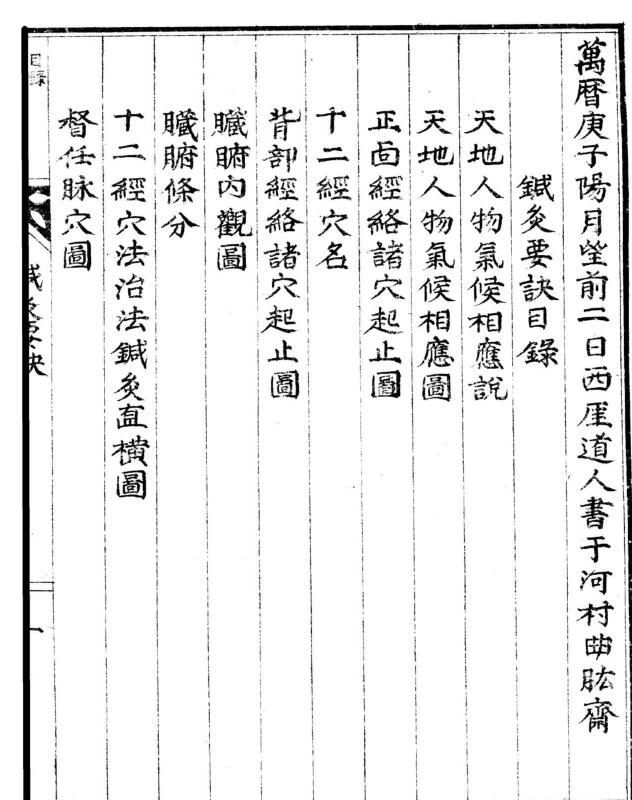 萬曆庚子陽月望前二日西厓道人書于河村曲肱齋
鍼灸要訣目錄
天地人物氣候相應說
天地人物氣候相應圖
正面經絡諸穴起止圖
十二經穴名
背部經絡諸穴起止圖
臟腑內觀圖
臟腑條分
十二經穴法治法鍼灸直橫圖
督任脉穴圖
目錄
鍼灸要訣
一